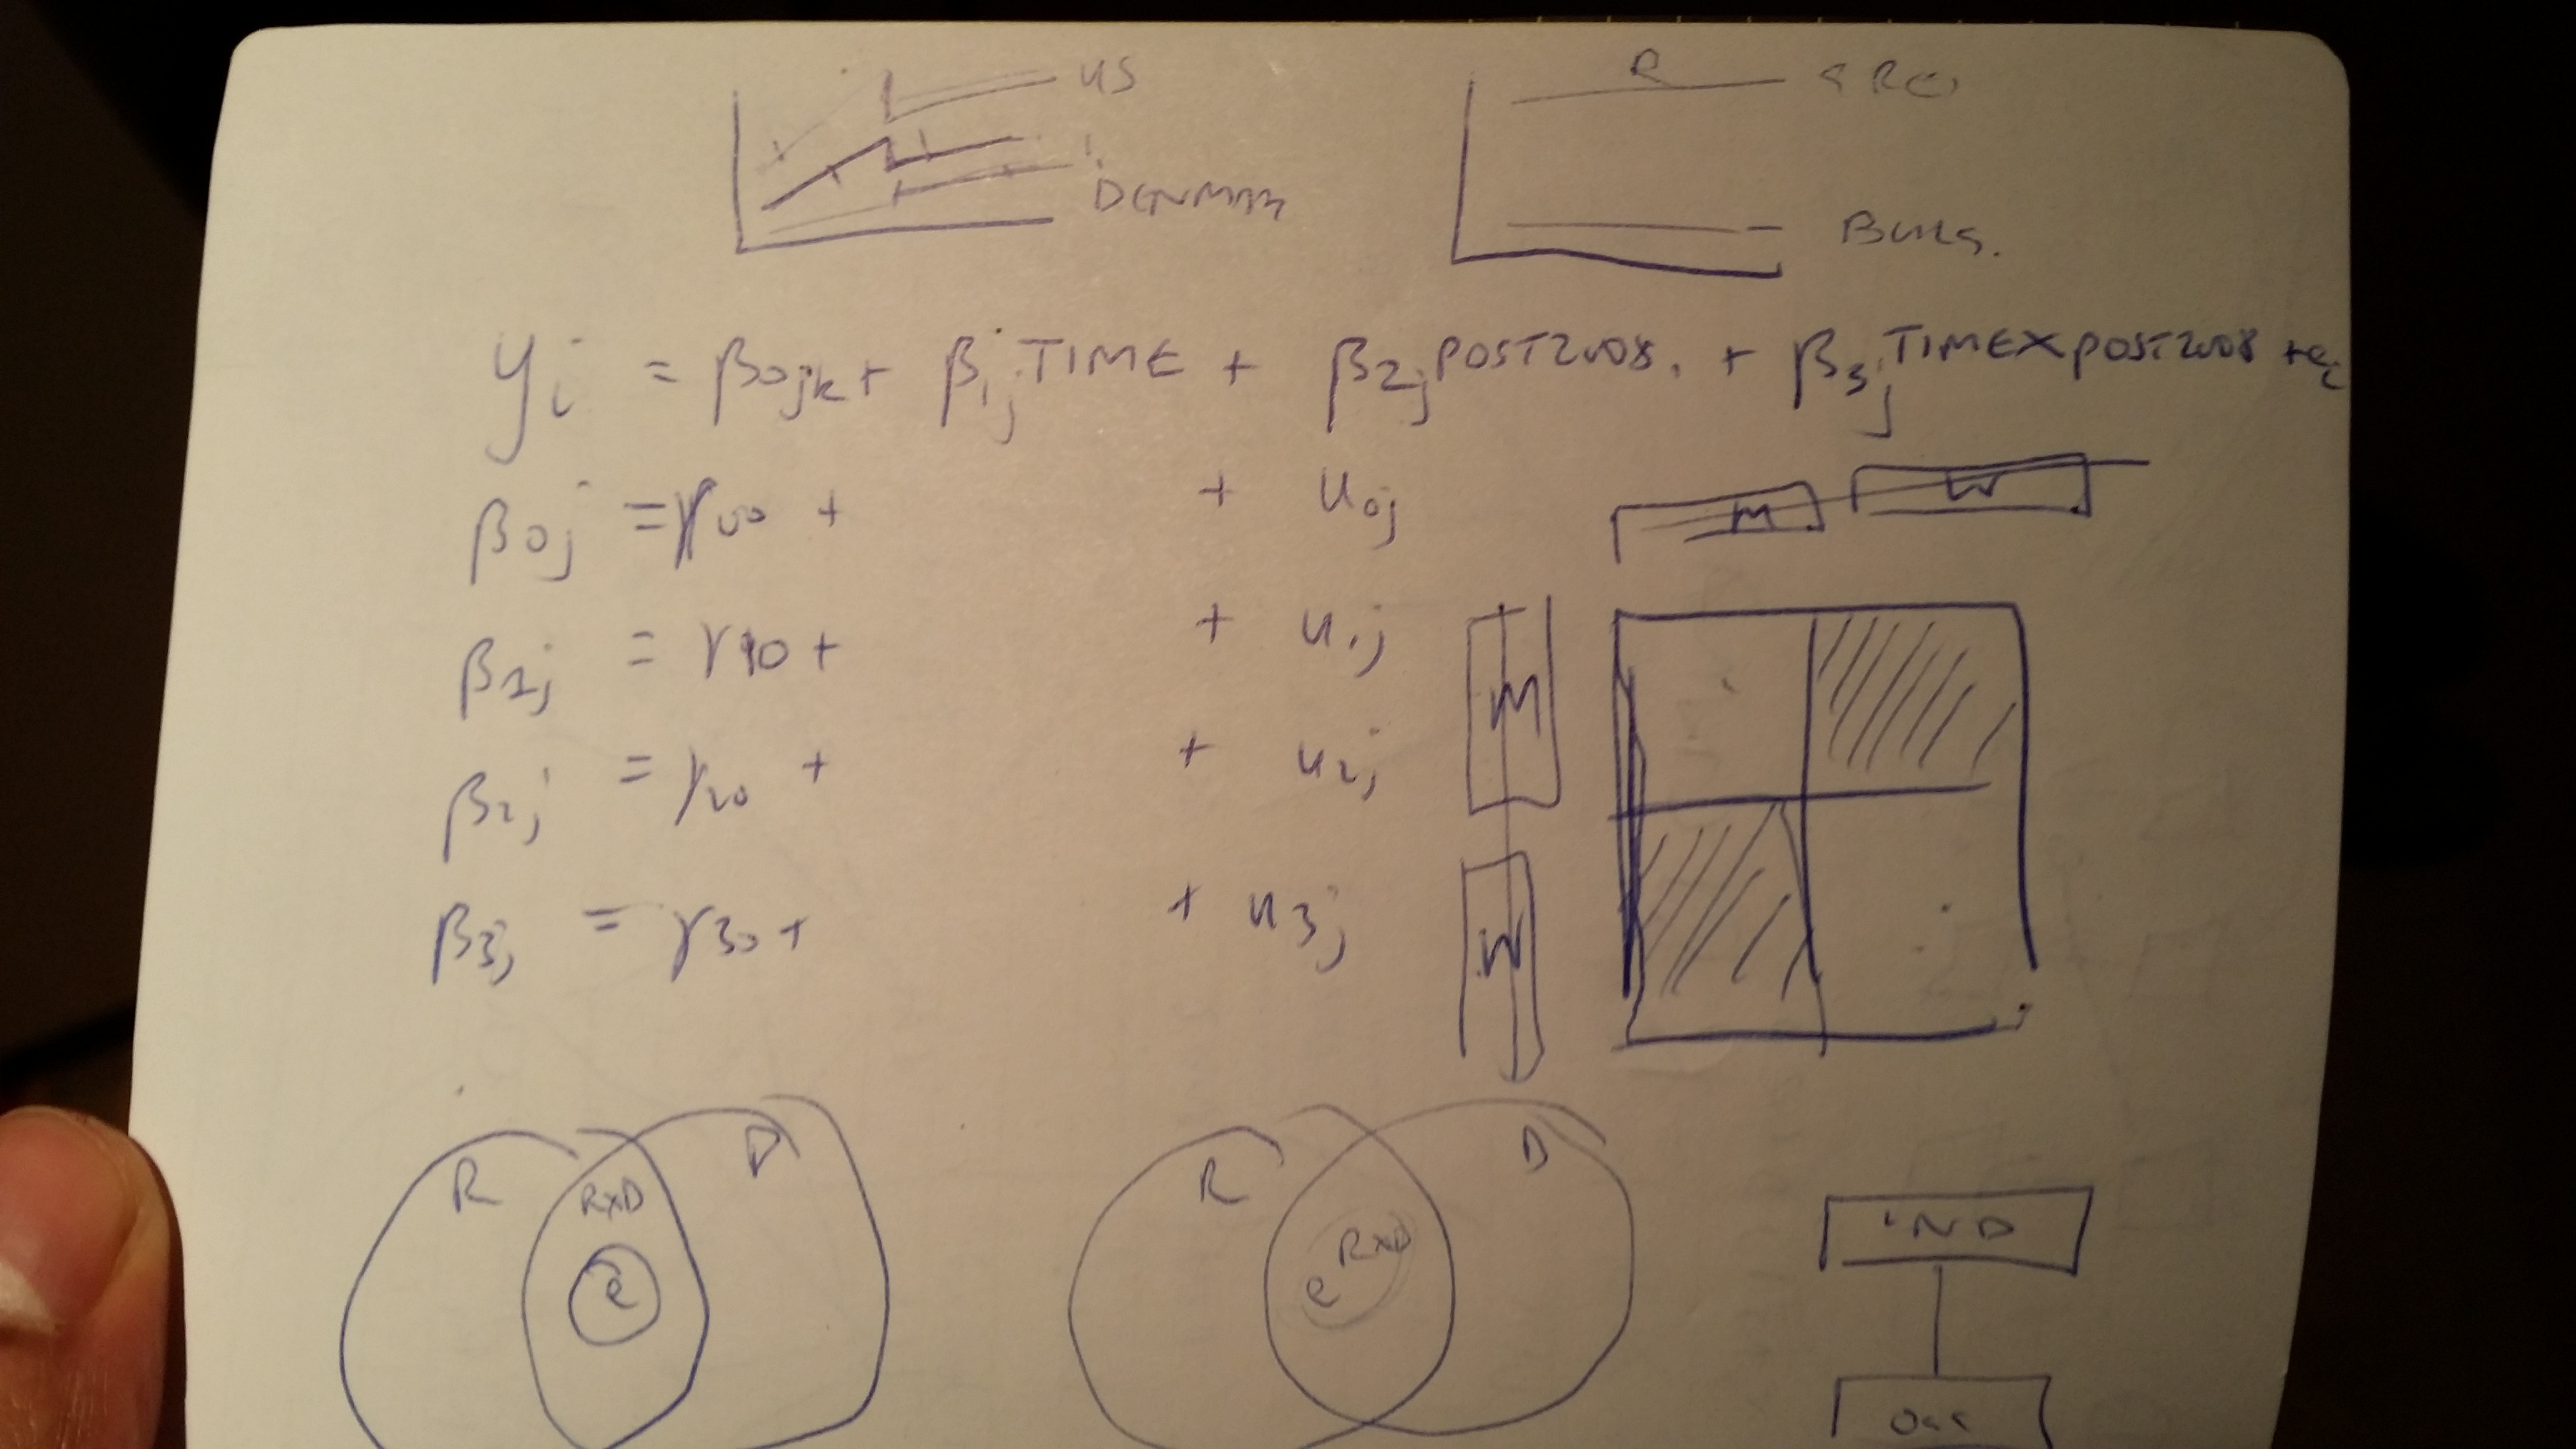 US
DENMARK
R
GRE
BULG.
yi = β0jk + β1j TIME + β2j POST2008 + β3j TIMEXPOST2008 + ei
β0j = γ00 + + u0j
M W
β1j = γ10 + + u1j
M
β2j = γ20 + + u2j
W
β3j = γ30 + + u3j
R RXD D
e
R D
e RXD
IND